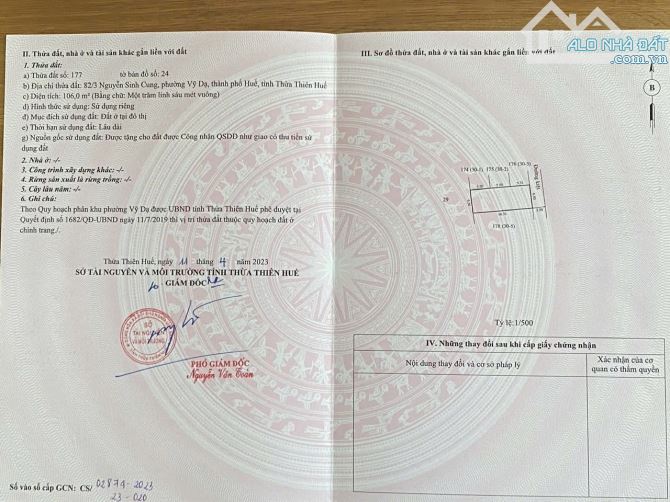 II. Thửa đất, nhà ở và tài sản khác gắn liền với đất
1. Thửa đất:
a) Thửa đất số: 177 tờ bản đồ số: 24
b) Địa chỉ thửa đất: 82/3 Nguyễn Sinh Cung, phường Vỹ Dạ, thành phố Huế, tỉnh Thừa Thiên Huế
c) Diện tích: 106,0 m² (Bằng chữ: Một trăm linh sáu mét vuông)
d) Hình thức sử dụng: Sử dụng riêng
đ) Mục đích sử dụng đất: Đất ở tại đô thị
e) Thời hạn sử dụng đất: Lâu dài
g) Nguồn gốc sử dụng: Được tặng cho đất được Công nhận QSDĐ như giao có thu tiền sử
dụng đất
2. Nhà ở: -/-
3. Công trình xây dựng khác: -/-
4. Rừng sản xuất là rừng trồng: -/-
5. Cây lâu năm: -/-
6. Ghi chú:
Theo Quy hoạch phân khu phường Vỹ Dạ được UBND tỉnh Thừa Thiên Huế phê duyệt tại
Quyết định số 1682/QĐ-UBND ngày 11/7/2019 thì vị trí thửa đất thuộc quy hoạch đất ở
chỉnh trang./.
Thừa Thiên Huế, ngày 11 tháng 4 năm 2023
SỞ TÀI NGUYÊN VÀ MÔI TRƯỜNG TỈNH THỪA THIÊN HUẾ
GIÁM ĐỐC
SỞ
TÀI NGUYÊN
VÀ MÔI TRƯỜNG
PHÓ GIÁM ĐỐC
Nguyễn Văn Toàn
Số vào sổ cấp GCN: CS/ 02874-2023
23-020
III. Sơ đồ thửa đất, nhà ở và tài sản khác gắn liền với đất
ALO NHÀ ĐẤT
.com.vn
B
176 (30-5)
174 (30-1) 175 (30-2)
Đường kiệt
29
178 (30-5)
Tỷ lệ: 1/500
IV. Những thay đổi sau khi cấp giấy chứng nhận
Nội dung thay đổi và cơ sở pháp lý
Xác nhận của cơ
quan có thẩm quyền